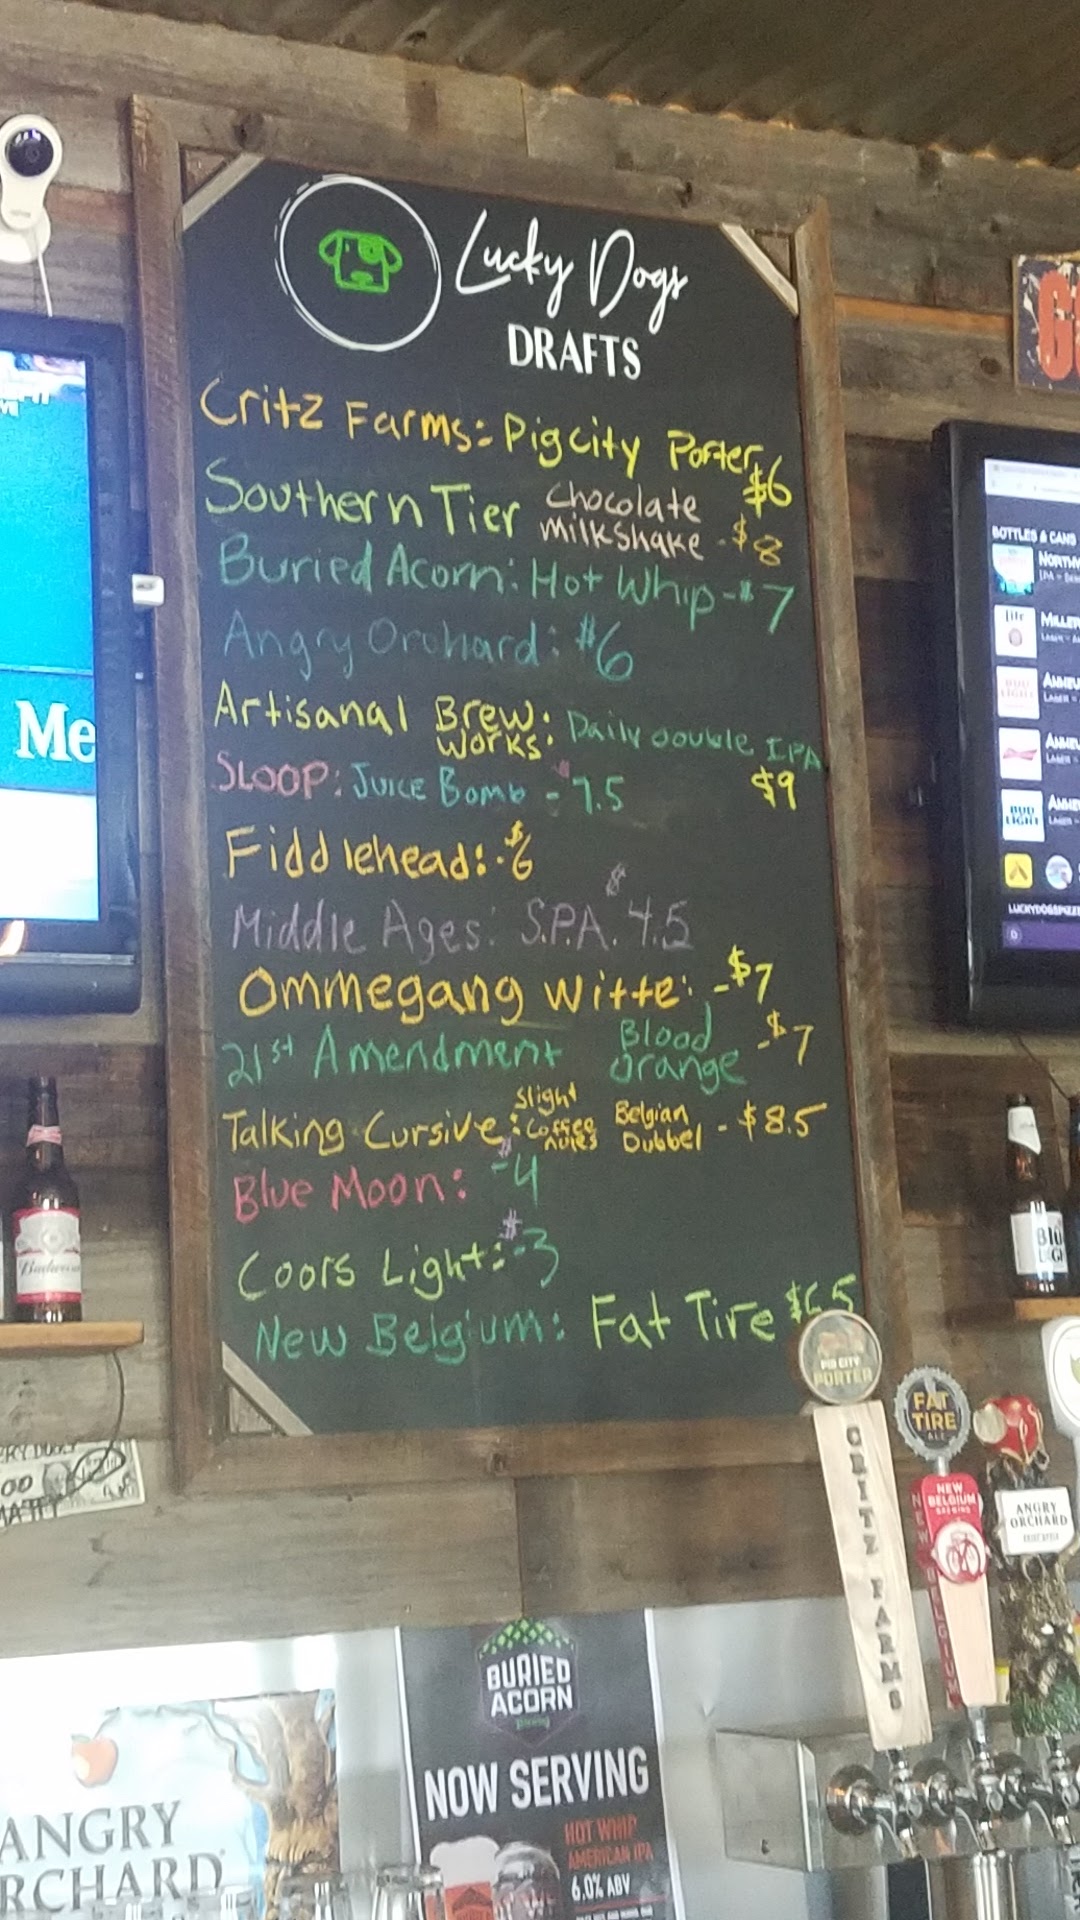 Lucky Dogs
DRAFTS
Critz Farms: Pigcity Porter $6
Southern Tier Chocolate Milkshake - $8
Buried Acorn: Hot Whip - $7
Angry Orchard: $6
Artisanal Brew Works: Daily double IPA $9
SLOOP: Juice Bomb - $7.5
Fiddlehead: - $6
Middle Ages: S.P.A. $4.5
Ommegang Witte: - $7
21st Amendment Blood Orange - $7
Talking Cursive: Slight Coffee notes Belgian Dubbel - $8.5
Blue Moon: - $4
Coors Light: - $3
New Belgium: Fat Tire
Me
BOTTLES & CANS
BUD LIGHT
PIG CITY
PORTER
CRITZ FARMS
FAT
TIRE
ALE
NEW
BELGIUM
BREWING
NEW BELGIUM
ANGRY
ORCHARD
Budweiser
BURIED
ACORN
NOW SERVING
HOT WHIP
AMERICAN IPA
6.0% ABV
ANGRY
RCHARD